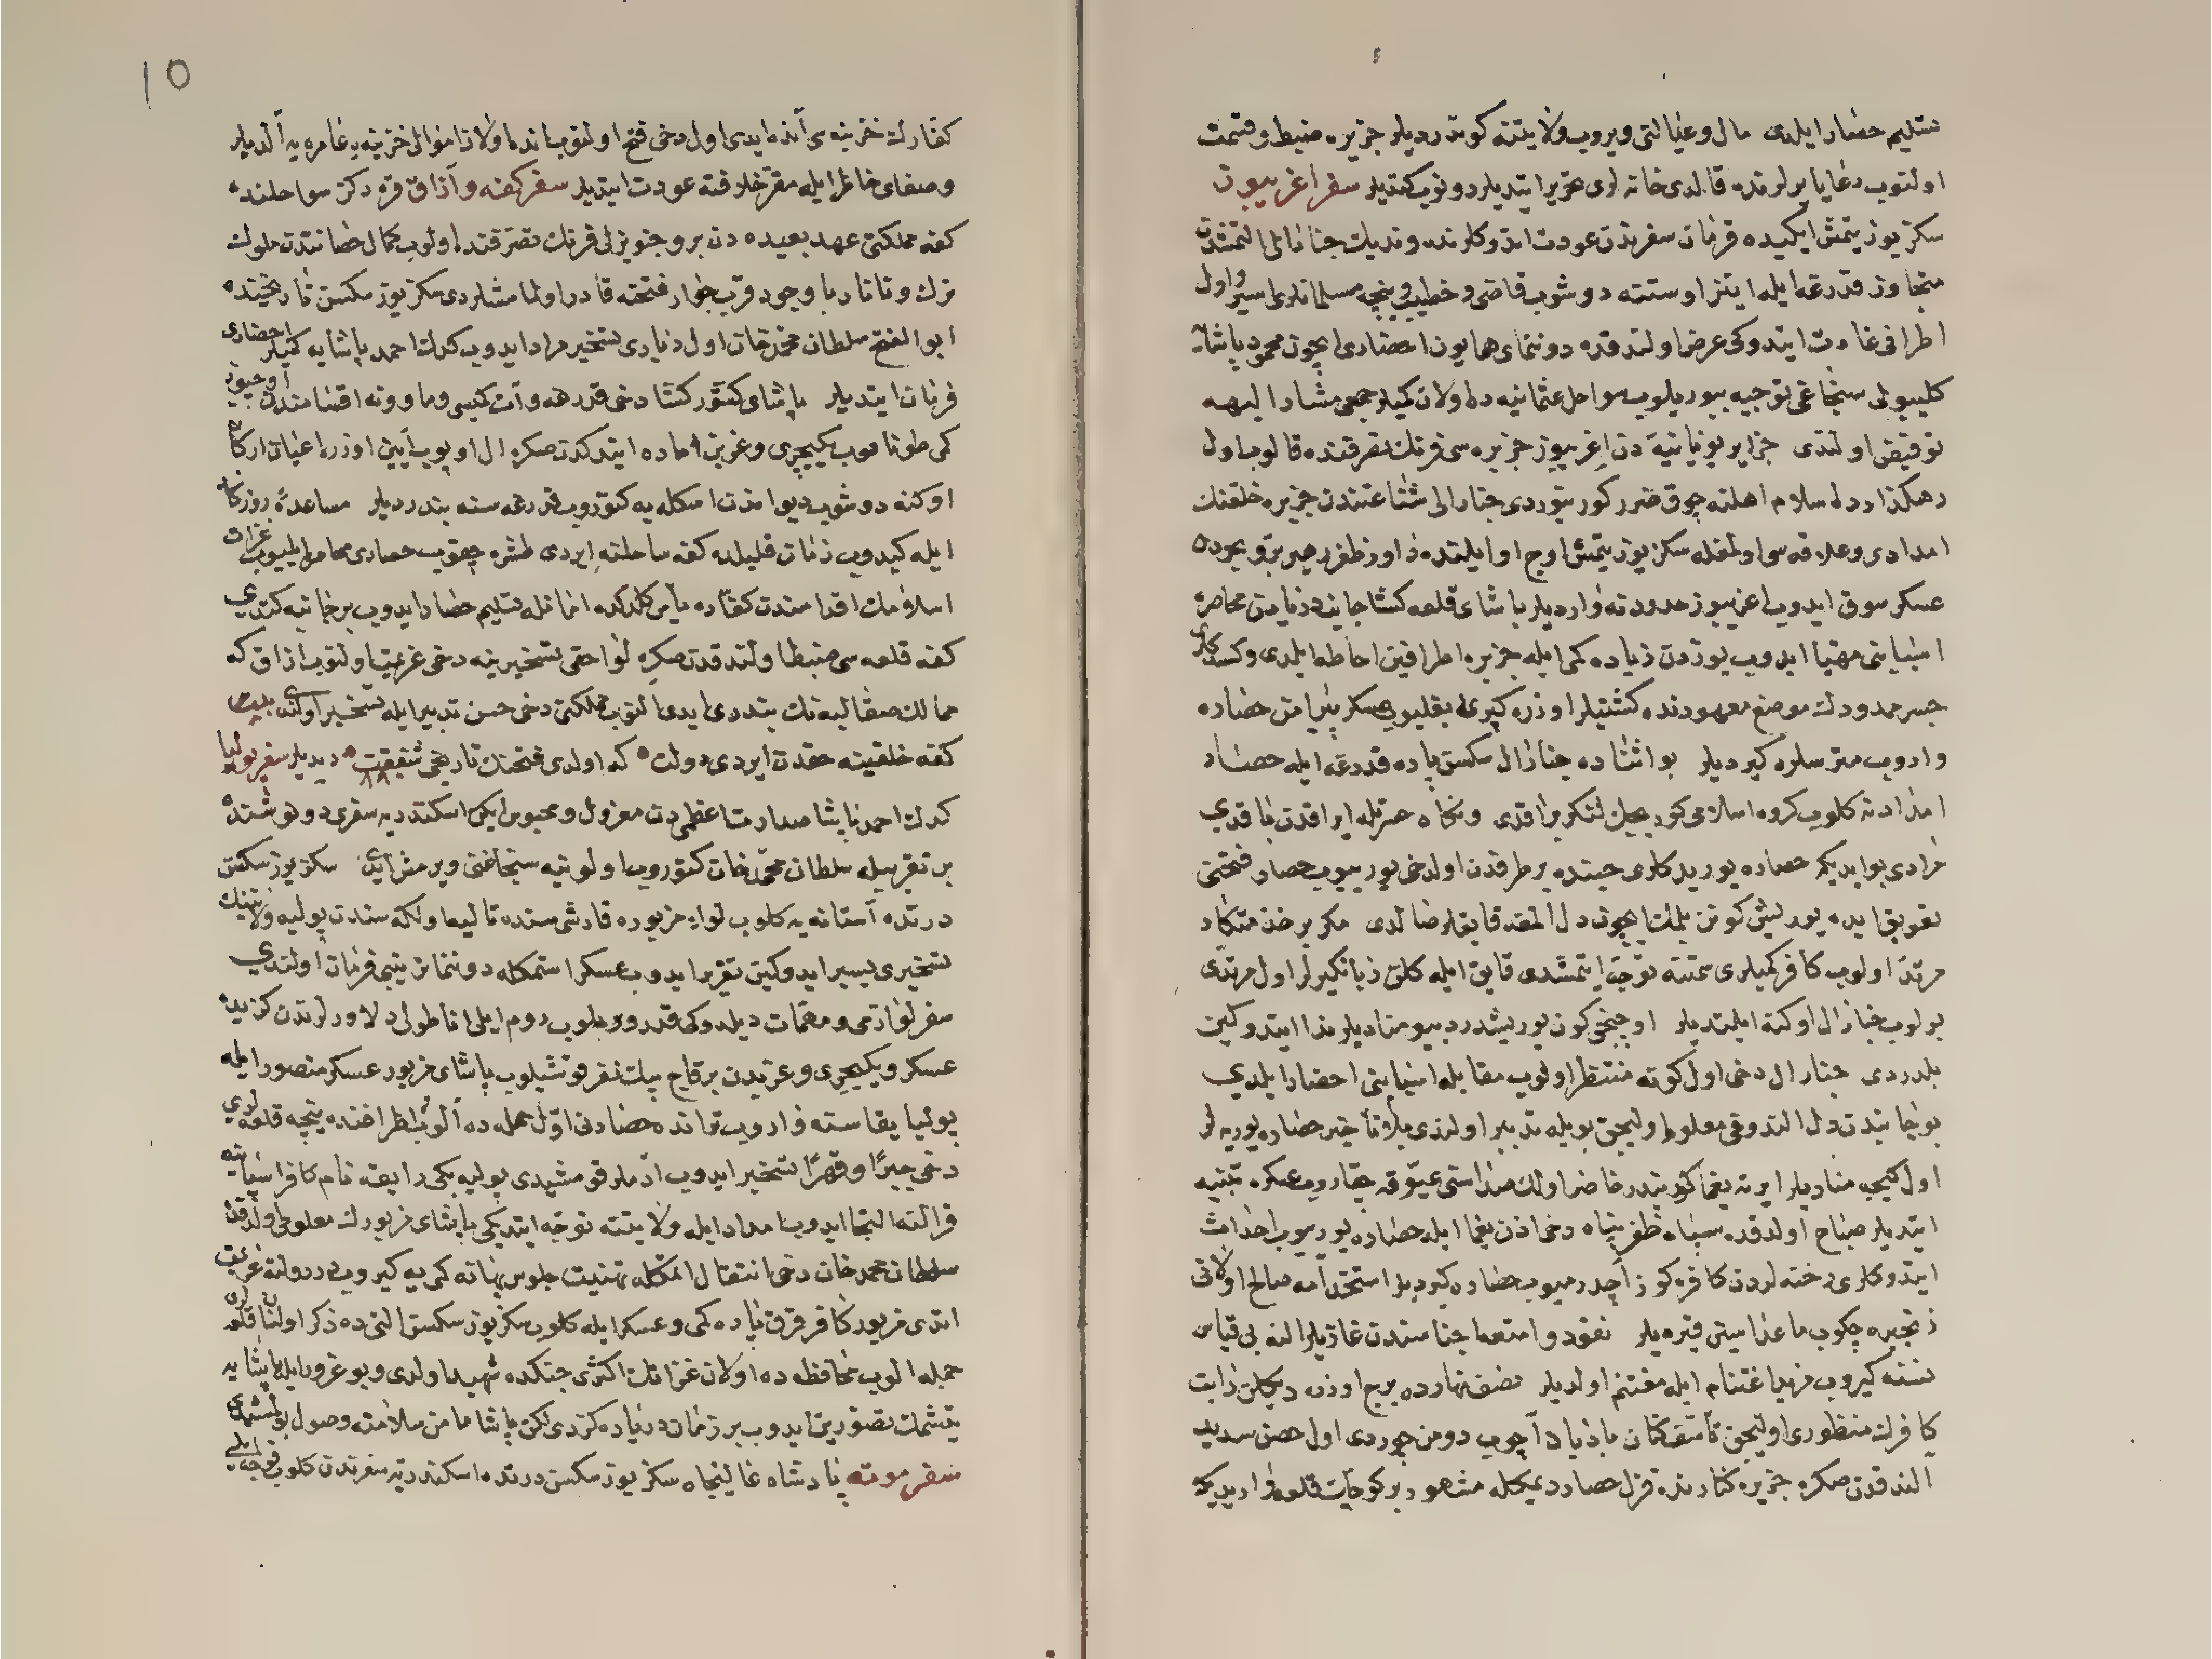 تسليم حصار ايلدى مال و عيالنى ويروب ولايتنه كوندرديلر جزيره ضبط و قسمت
اولنوب رعايا يرلرنده قالدى خانه لرى تحرير ايتديلر دونوب كتديلر سفر اغريبون
سكز يوز يتمش ايكيده قرمان سفرندن عودت اتدوكلرنده ونديك جنارالى التمشدن
متجاوز قدرغه ايله اينز اوستنه دوشوب قاضى و خطيب و نيجه مسلمانلرى اسير و اول
اطرافى غارت ايتدوكى عرض اولندقده دوننماى همايون احضارى ايچون محمود پاشايه
كليبولى سنجاغى توجيه بيوريلوب سواحل عثمانيه ده اولان كميلر جمعى مشار اليهه
تفويض اولندى جزاير يونانيه دن اغريبوز جزيره سى فرنك تصرفنده قالوب اول
رهكذارده اسلام اهلنه چوق ضرر كورينوردى جنارالى شقاعتندن جزيره خلقنك
امدادى و علاقه سى اولمغله سكز يوز يتمش اوچ اوايلنده داور ظفر رهبر بر و بحردن
عسكر سوق ايدوب اغريبوز حدودنه وارديلر پاشاى قلعه كشا جانب دريادن محاصره
اسبابنى مهيا ايدوب يوزدن زياده كمى ايله جزيره اطرافين احاطه ايلدى و كسيلان
جسر ممدودك موضع معهودنده كشتيلر اوزره كپرى بغليوب عسكر پيرامن حصاره
واروب مترسلره كيرديلر بو اثناده جنارال سكسن پاره قدرغه ايله حصار
امدادنه كلوب كروه اسلامى كوريجك لنكر براقدى و نكاه حسرتله ايراقدن باقدى
مرادى بو ايديكه حصاره يوريدكلرى حينده بر طرفدن اولدخى يوريوب حصار فتحنى
تعويق ايده يوريش كونن بلمك ايچون دل المغه قايقلر صالدى مكر بر خذمتكار
مرتد اولوب كافر كميلرى سمتنه توجه ايتمشدى قايق ايله كلن زبانكيرلر اول مرتدى
بولوب جنارال اوكنه ايلتديلر اوچنجى كون يوريشدر ديو مناديلر ندا ايتدوكين
بلدردى جنارال دخى اول كونه منتظر اولوب مقابله اسبابنى احضار ايلدى
بو جانبدن دل الندوغى معلوم اوليجق بويله تدبير اولندى بلا تأخير حصاره يوريه لر
اول كيجه مناديلر ايرته يغما كونيدر حاضر اولك صداسنى عيوقه چقاروب عسكره تنبيه
ايتديلر صباح اولدقده سپاه ظفر پناه دخى اذن يغما ايله حصاره يوريوب احداث
ايتدوكلرى رخنه لردن كافره كوز آچدرميوب حصاره كيرديلر استخدامه صالح اولانى
زنجيره چكوب ماعداسين قيرديلر نقود و امتعه اجناسندن غازيلر النه بى قياس
نسنه كيروب مزيد اغتنام ايله مغتنم اولديلر نصف نهارده برج اوزره ديكلن رايت
كافرك منظورى اوليجق تأسف كنان بادبان آچوب دومن چوردى اول حصن سديد
الندقدن صكره جزيره كنارنده قزل حصار ديمكله مشهور بر كوچك قلعه وار ايديكه
كفارك خزينه سى آنده ايدى اول دخى فتح اولنوب انده اولان اموالى خزينه عامره يه آلديلر
و صفاى خاطر ايله مقر خلافته عودت ايتديلر سفر كفه و آزاق قره دكز سواحلنده
كفه مملكتى عهد بعيده دن برو جنويزلى فرنك تصرفنده اولوب كمال حصانتدن ملوك
ترك و تاتار با وجود قرب جوار فتحنه قادر اولمامشلردى سكز يوز سكسن تاريخنده
ابو الفتح سلطان محمد خان اول ديارى تسخير مراد ايدوب كدك احمد پاشايه كميلر احضارى
فرمان ايتديلر پاشاى كشور كشا دخى قدرغه و آت كميسى و ماوونه اقسامندن اوچيوز
كمى طوناديوب يكيچرى و عزب اماده ايتدكدن صكره ال اوپوب آيين اوزره اعيان اركان
اوكنه دوشوب ديواندن اسكله يه كتوروب قدرغه سنه بندرديلر مساعدۀ روزكار
ايله كيدوب زمان قليلده كفه ساحلنه ايردى طشره چقوب حصارى محاصره ايليوب غزات
اسلامك اقدامندن كفاره يأس كلدكده امانله تسليم حصار ايدوب بر جانبه كتدى
كفه قلعه سى ضبط اولندقدن صكره لواحقى تسخيرينه دخى عزيمت اولنوب ازاق كه
ممالك صقالبه نك بندرى ايدى النوب مملكتى دخى حسن تدبير ايله تسخير اولندى بيت
كفه خلقينه حقدن ايردى دولت كه اولدى فتحنك تاريخى شفقت ٨٨٠ ديديلر سفر پوليا
كدك احمد پاشا صدارت اعظمى دن معزول و محبوس ايكن اسكندريه سفرى دونوشنده
بر تقريبله سلطان محمد خان كتوروب اولونيه سنجاغنى ويرمش ايدى سكز يوز سكسن
درتده آستانه يه كلوب لواء مزبوره قارشى سنده تاليه اولكه سندن پوليه ولايتنك
تسخيرى يسير ايدوكين تقرير ايدوب عسكر استمكله دوننماز ينبى فرمان اولندى
سفر لوازمى و مهمات ديلدوكى قدر ويريلوب روم ايلى اناطولى دلاورلرندن كزيده
عسكر و يكيچرى و عزبدن برقاچ بيك نفر قوشيلوب پاشاى مزبور عسكر منصور ايله
پوليا يقاسنه واروب تراندہ حصارنى اول حمله ده آلوب اطرافنده نيجه قلعه لرى
دخى جبرًا و قهرًا تسخير ايدوب ادملر قومشيدى پوليه بكى رايقه نام كافر اسپانيه
قرالنه التجا ايدوب امداد ايله ولايتنه توجه ايتديكى پاشاى مزبورك معلومى اولدقدن
سلطان محمد خان دخى انتقال ايتمكله تهنيت جلوس بهانه كمى يه كيروب در دولته عزيمت
اتدى مزبور كافر قرق پاره كمى و عسكر ايله كلوب سكز يوز سكسن التى ده ذكر اولنان قلعه لرى
جمله الوب محافظه ده اولان غزاتك اكثرى جنكده شهيد اولدى و بو غرور ايله پاشايه
يتشمك تصورين ايدوب بر زمان درياده كزدى لكن پاشا مامن سلامته وصول بولمشيدى
سفر موته پادشاه عاليجاه سكز يوز سكسن درتده اسكندريه سفرندن كلوب قوجه ايلى